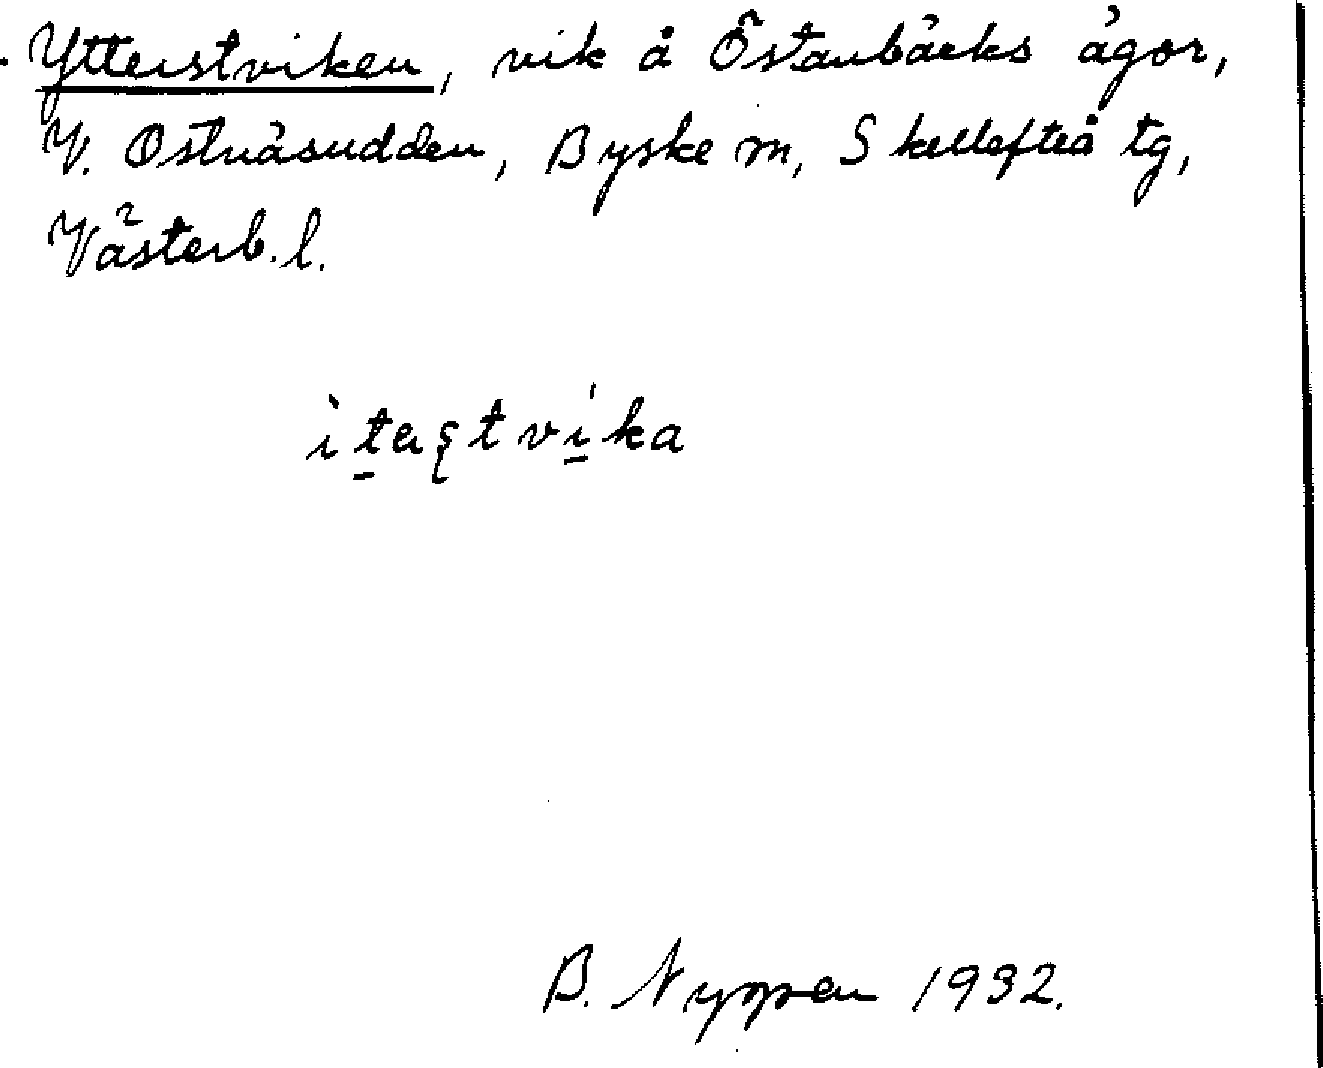 Ytterstviken, vik å Östanbäcks ägor,
V. Ostnäsudden, Byske sn, Skellefteå tg,
Västerb. l.
B. Nyppen 1932.